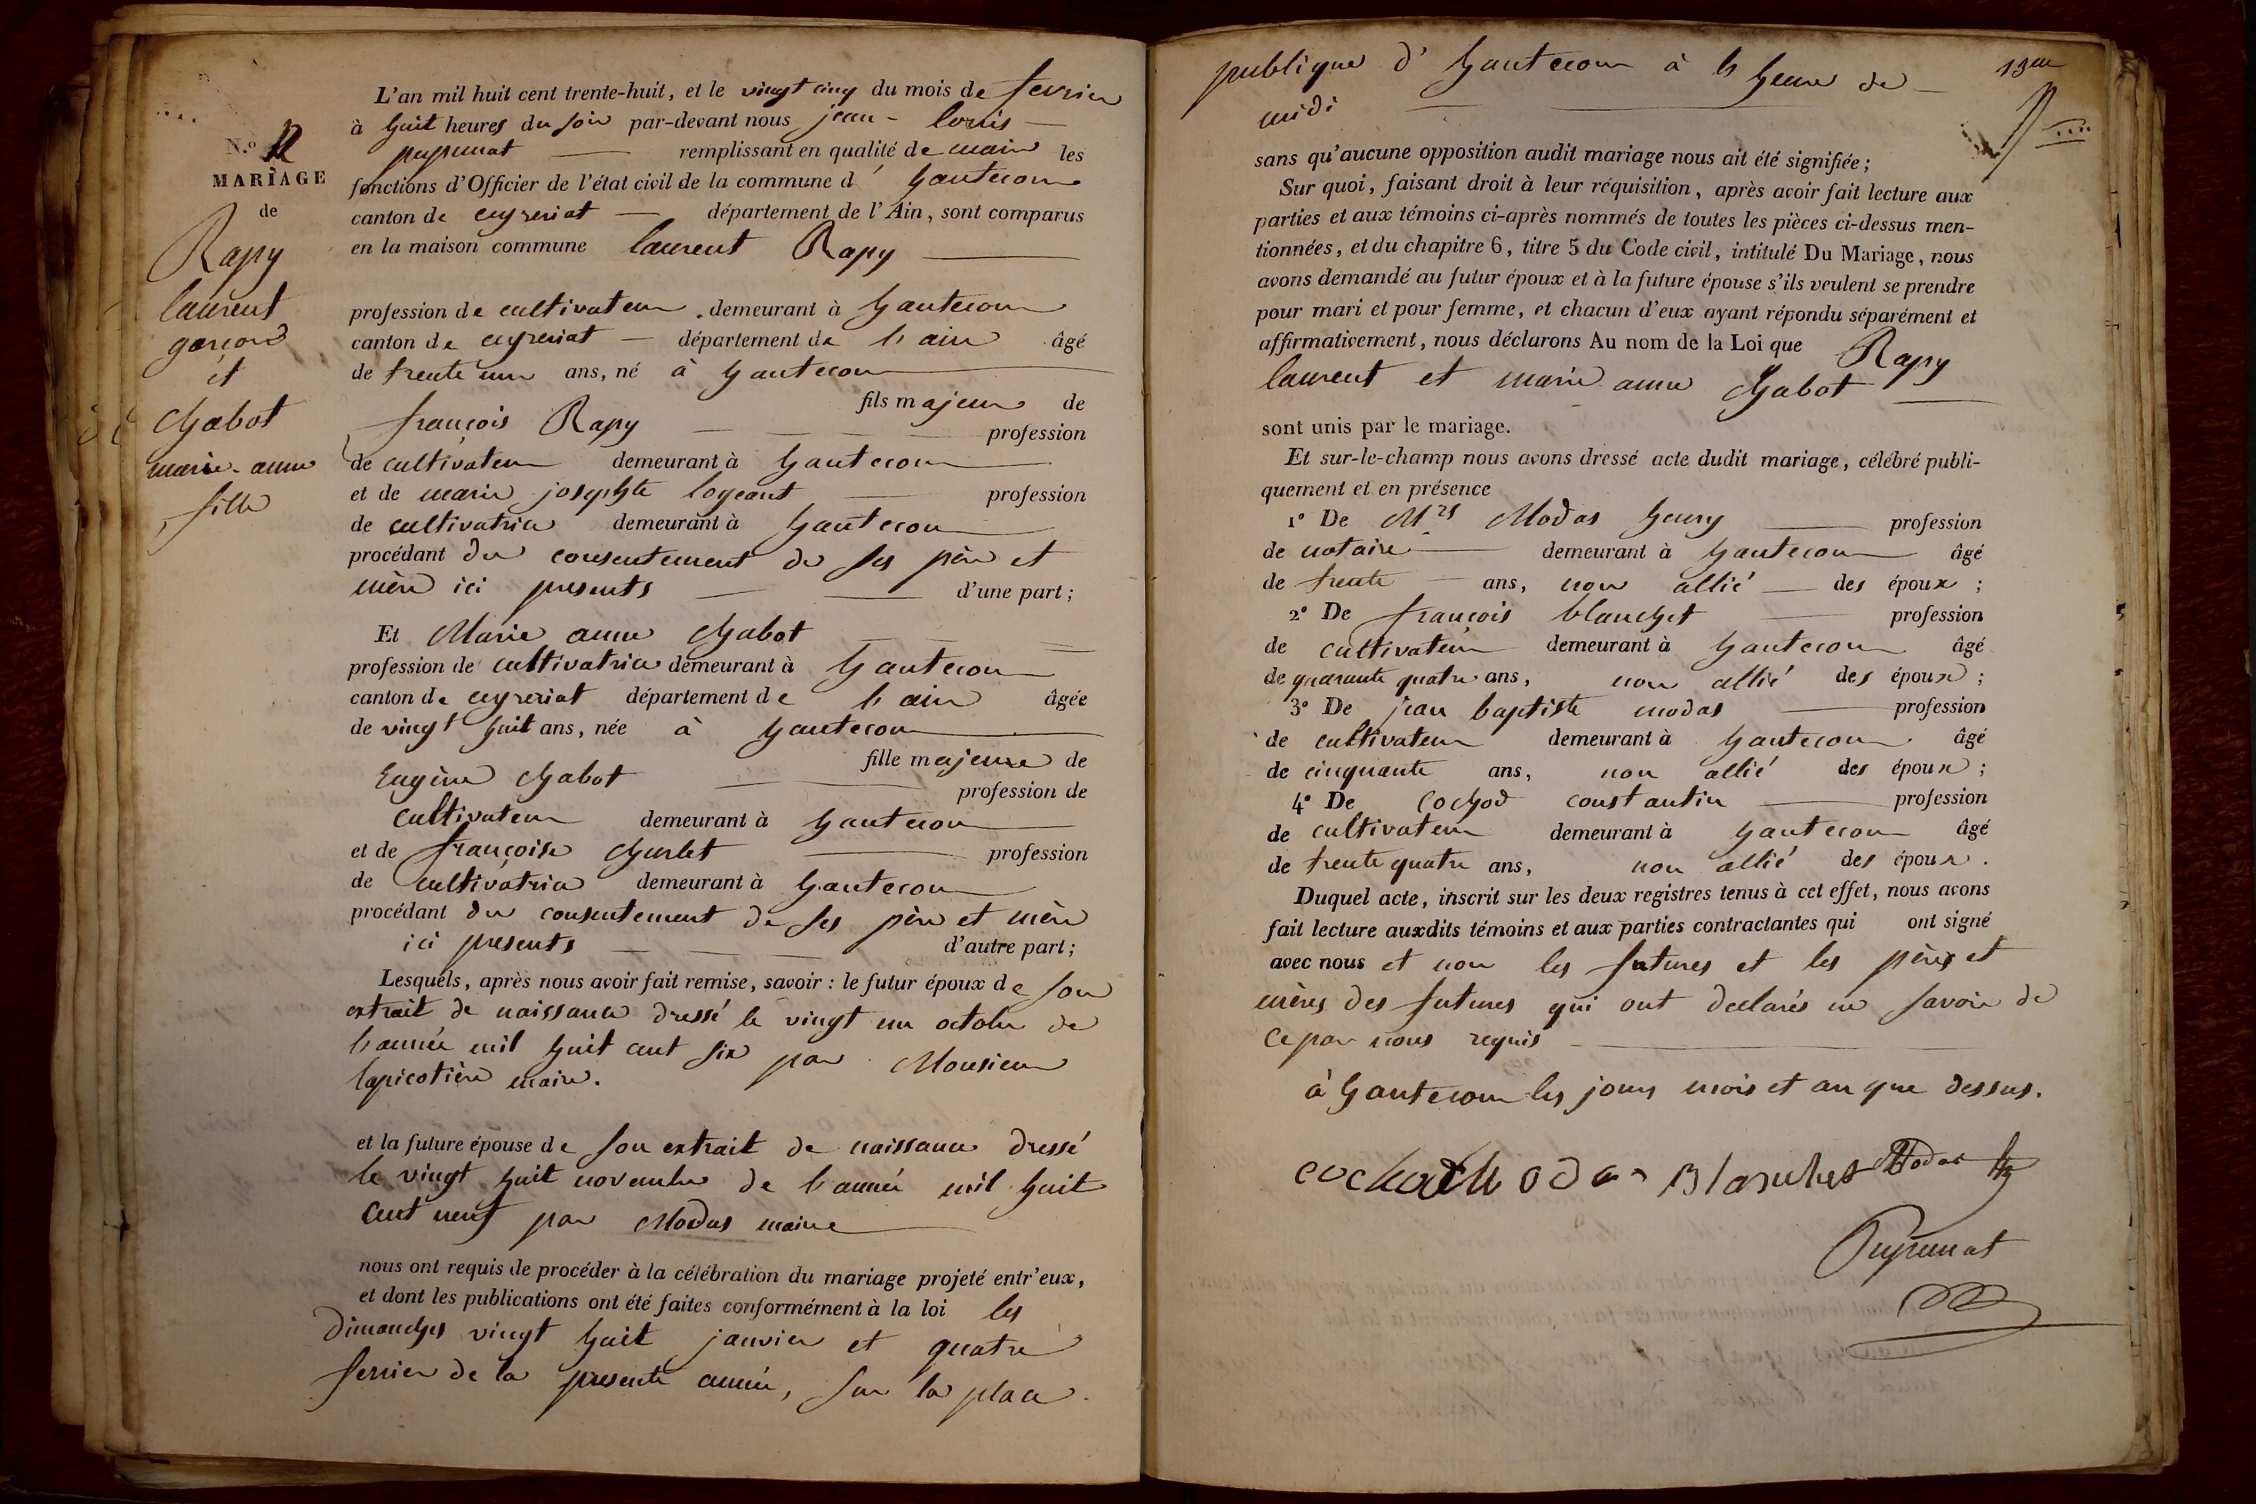 N.o 12
MARIAGE
de
Rapy
laurent
garcon
et
Chabot
marie-anne
fille
L'an mil huit cent trente-huit, et le vingt cinq du mois de fevrier
à huit heures du soir par-devant nous jean-louis
puprunat remplissant en qualité de maire les
fonctions d'Officier de l'état civil de la commune d'hautecour
canton de ceyzeriat département de l'Ain, sont comparus
en la maison commune laurent Rapy
profession de cultivateur demeurant à hautecour
canton de ceyzeriat département de l'ain âgé
de trente un ans, né à hautecour
fils majeur de
françois Rapy profession
de cultivateur demeurant à hautecour
et de marie josephte logeant profession
de cultivatrice demeurant à hautecour
procédant du consentement de ses père et
mère ici presents d'une part;
Et Marie anne Chabot
profession de cultivatrice demeurant à hautecour
canton de ceyzeriat département de l'ain âgée
de vingt huit ans, née à hautecour
fille majeure de
Eugène Chabot profession de
cultivateur demeurant à hautecour
et de françoise Churlet profession
de cultivatrice demeurant à hautecour
procédant du consentement de ses père et mère
ici presents d'autre part;
Lesquels, après nous avoir fait remise, savoir: le futur époux de son
extrait de naissance dressé le vingt un octobre de
l'année mil huit cent six par Monsieur
lapicotière maire.
et la future épouse de son extrait de naissance dressé
le vingt huit novembre de l'année mil huit
cent neuf par Modas maire
nous ont requis de procéder à la célébration du mariage projeté entr'eux,
et dont les publications ont été faites conformément à la loi les
dimanches vingt huit janvier et quatre
fevrier de la presente année, sur la place
publique d'hautecour à l'heure de
midi
13me
sans qu'aucune opposition audit mariage nous ait été signifiée;
Sur quoi, faisant droit à leur réquisition, après avoir fait lecture aux
parties et aux témoins ci-après nommés de toutes les pièces ci-dessus men-
tionnées, et du chapitre 6, titre 5 du Code civil, intitulé Du Mariage, nous
avons demandé au futur époux et à la future épouse s'ils veulent se prendre
pour mari et pour femme, et chacun d'eux ayant répondu séparément et
affirmativement, nous déclarons Au nom de la Loi que Rapy
laurent et marie anne Chabot
sont unis par le mariage.
Et sur-le-champ nous avons dressé acte dudit mariage, célébré publi-
quement et en présence
1° De Mrs Modas henry profession
de notaire demeurant à hautecour âgé
de trente ans, non allié des époux;
2° De françois blanchet profession
de cultivateur demeurant à hautecour âgé
de quarante quatre ans, non allié des époux;
3° De jean baptiste modas profession
de cultivateur demeurant à hautecour âgé
de cinquante ans, non allié des époux;
4° De Cochod constantin profession
de cultivateur demeurant à hautecour âgé
de trente quatre ans, non allié des époux.
Duquel acte, inscrit sur les deux registres tenus à cet effet, nous avons
fait lecture auxdits témoins et aux parties contractantes qui ont signé
avec nous et non les futures et les pères et
mères des futures qui ont declarés ne savoir de
ce par nous requis
à hautecour les jours mois et an que dessus.
cochod Modas Blanchet Modas
Puprunat